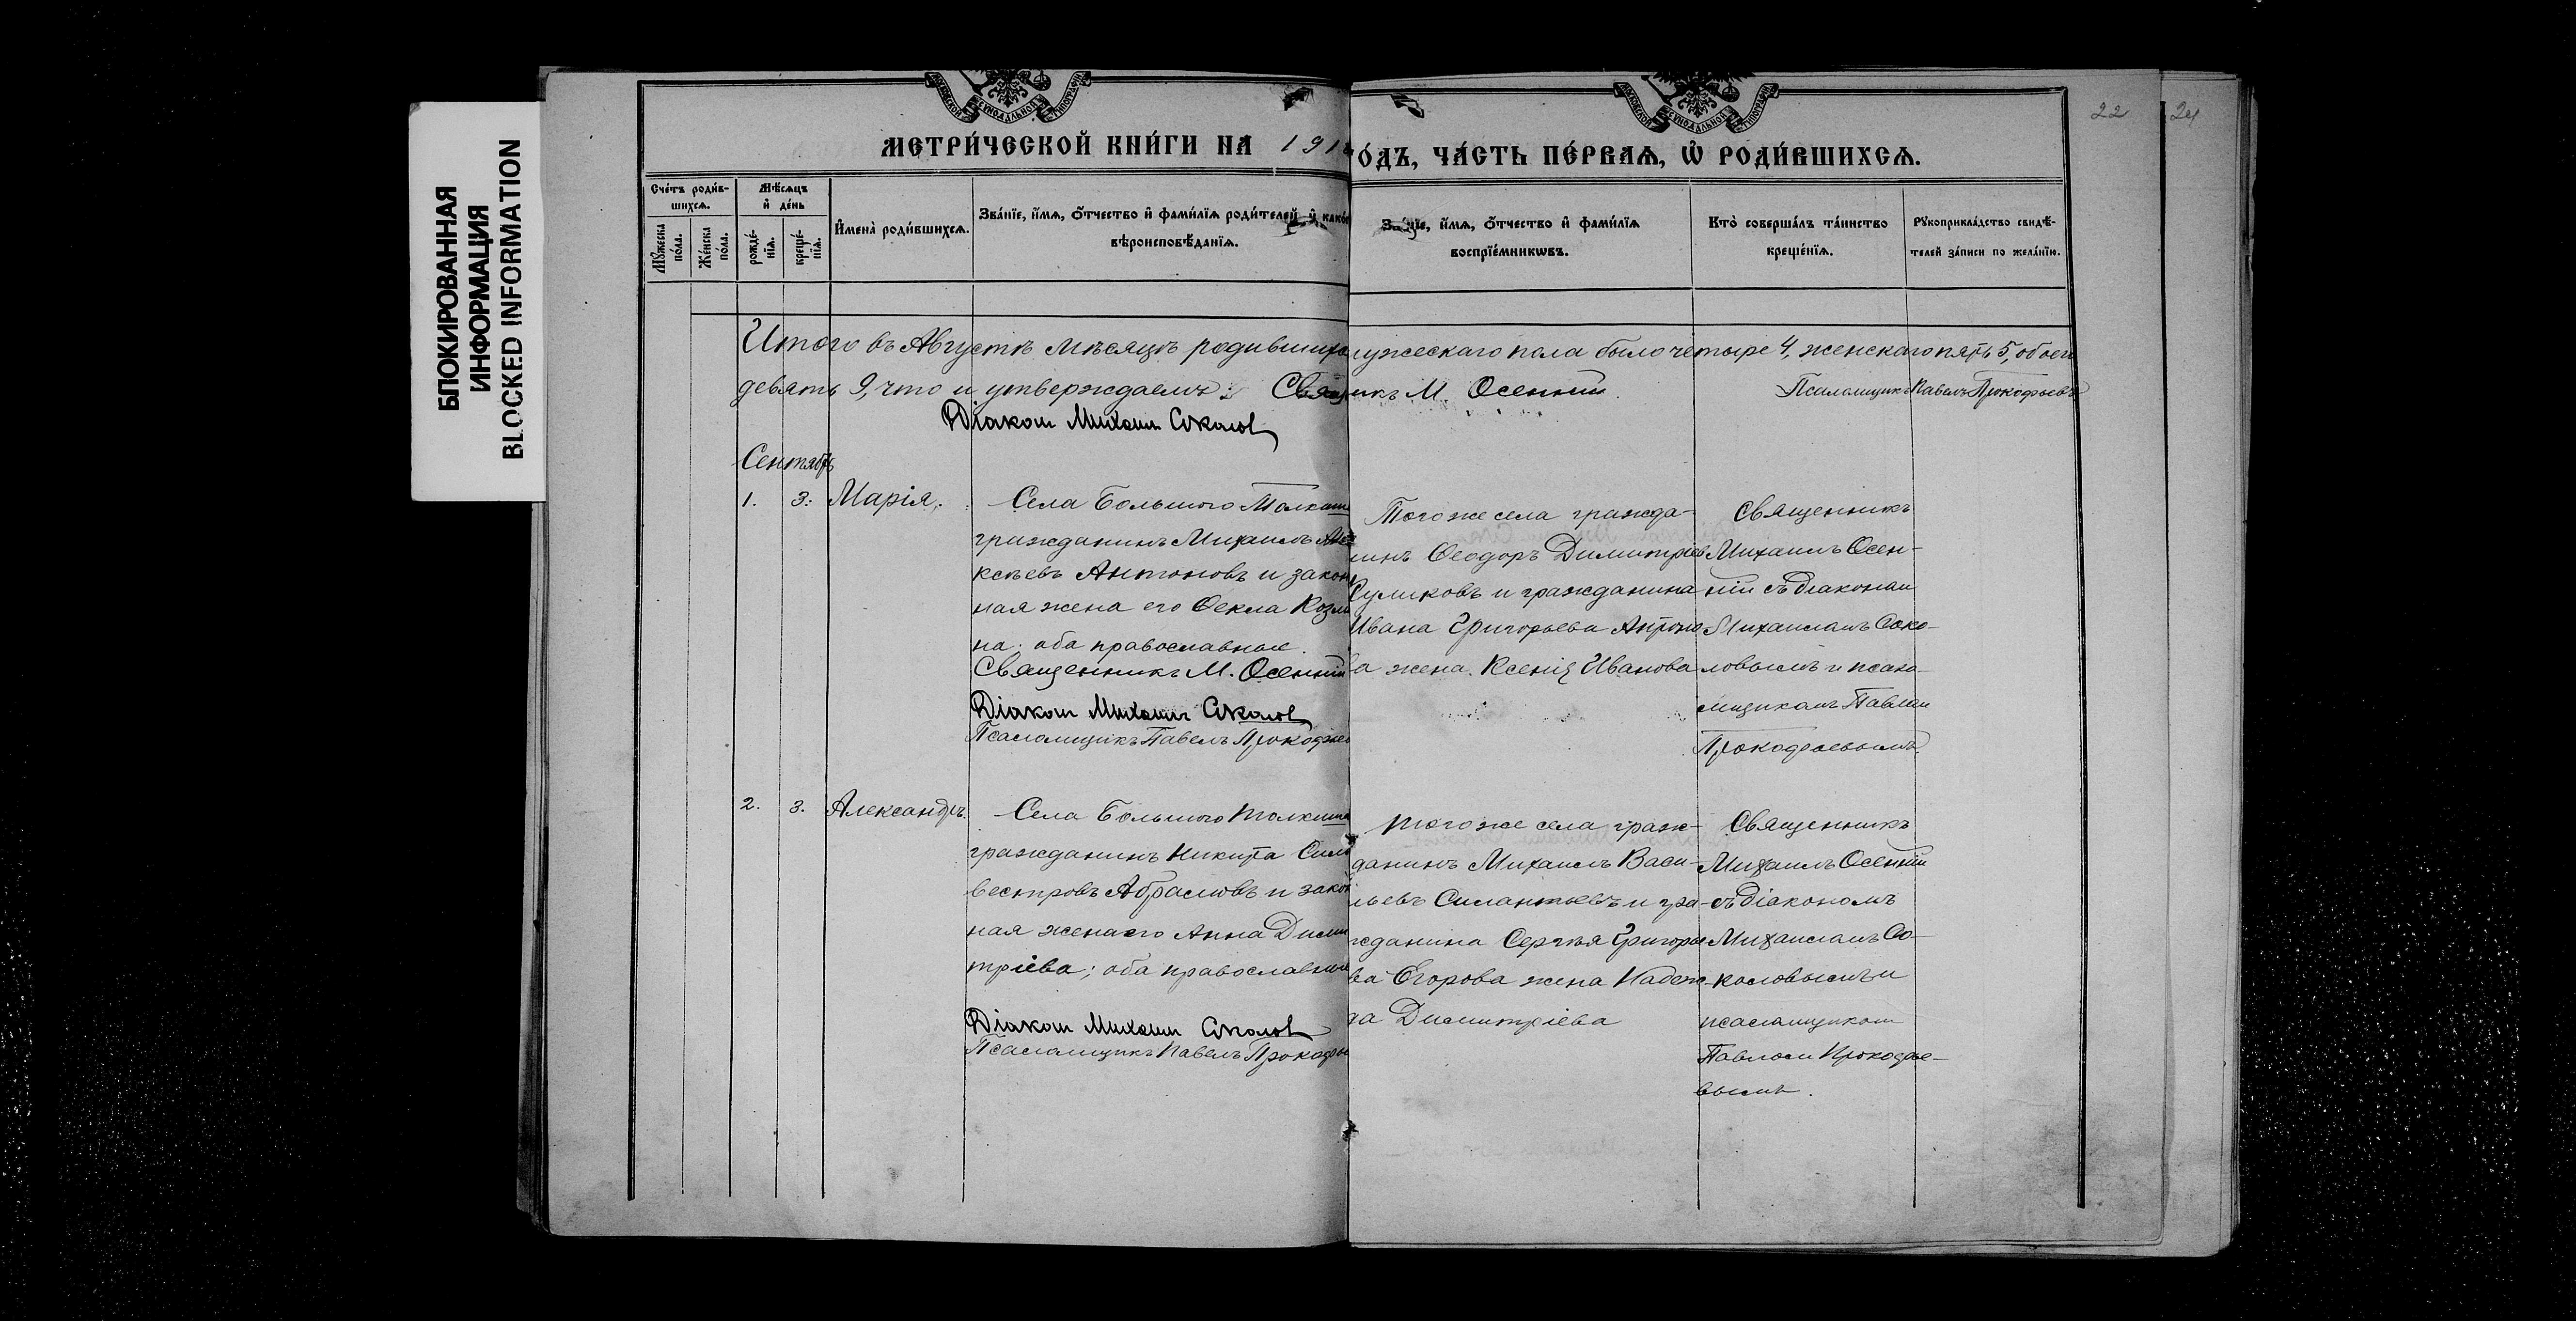 БЛОКИРОВАННАЯ
ИНФОРМАЦИЯ
BLOCKED INFORMATION
МЕТРИ́ЧЕСКОЙ КНИ́ГИ НА 191
О́ДЪ, ЧА́СТЬ ПЕ́РВАЯ, Ѡ҆ РОДИ́ВШИХСЯ.
22
24
Сче́тъ роди́в-
шихся.
Мѣсяцъ
и҆ де́нь
Мꙋ́жеска
по́ла.
Же́нска
по́ла.
рожде́-
нїя.
креще́-
нїя.
И҆мена̀ роди́вшихся.
Зва́нїе, и҆́мя, о҆́тчество и҆ фами́лїя роди́телей, и҆ како́й
вѣроисповѣ́данїя.
Зва́нїе, и҆́мя, о҆́тчество и҆ фами́лїя
воспрїе́мникѡвъ.
Кто̀ соверша́лъ та́инство
креще́нїя.
Рꙋкоприкла́дство свидѣ́-
телей за́писи по жела́нїю.
Итого въ Августѣ мѣсяцѣ родившихся мужескаго пола было четыре 4, женскаго пять 5, обоего
девять 9, что и утверждаемъ: Священникъ М. Осенній. Псаломщикъ Павелъ Прокофьевъ
Діаконъ Михаилъ Соколовъ
Сентябрь
1. 3. Марія.
Села Большого Толкиша
гражданинъ Михаилъ Але
ксѣевъ Антоновъ и закон
ная жена его Ѳекла Козми
на; оба православные.
Священникъ М. Осенній
Діаконъ Михаилъ Соколовъ
Псаломщикъ Павелъ Прокофьев
Того же села гражда-
нинъ Ѳеодоръ Димитріев
Куликовъ и гражданина
Ивана Григорьева Антоно
ва жена Ксенія Иванова
Священникъ
Михаилъ Осен-
ній съ діакономъ
Михаиломъ Соко-
ловымъ и псало-
мщикомъ Павломъ
Прокофьевымъ.
2. 3. Александръ.
Села Большого Толкиша
гражданинъ Никита Силь
вестровъ Абрамовъ и закон
ная жена его Анна Дими
тріева; оба православные
Діаконъ Михаилъ Соколовъ
Псаломщикъ Павелъ Прокофье
Того же села граж-
данинъ Михаилъ Васи-
льевъ Силантьевъ и гра-
жданина Сергѣя Григорье
ва Егорова жена Надеж-
да Димитріева
Священникъ
Михаилъ Осенній
съ діакономъ
Михаиломъ Со-
коловымъ и
псаломщикомъ
Павломъ Прокофье-
вымъ.